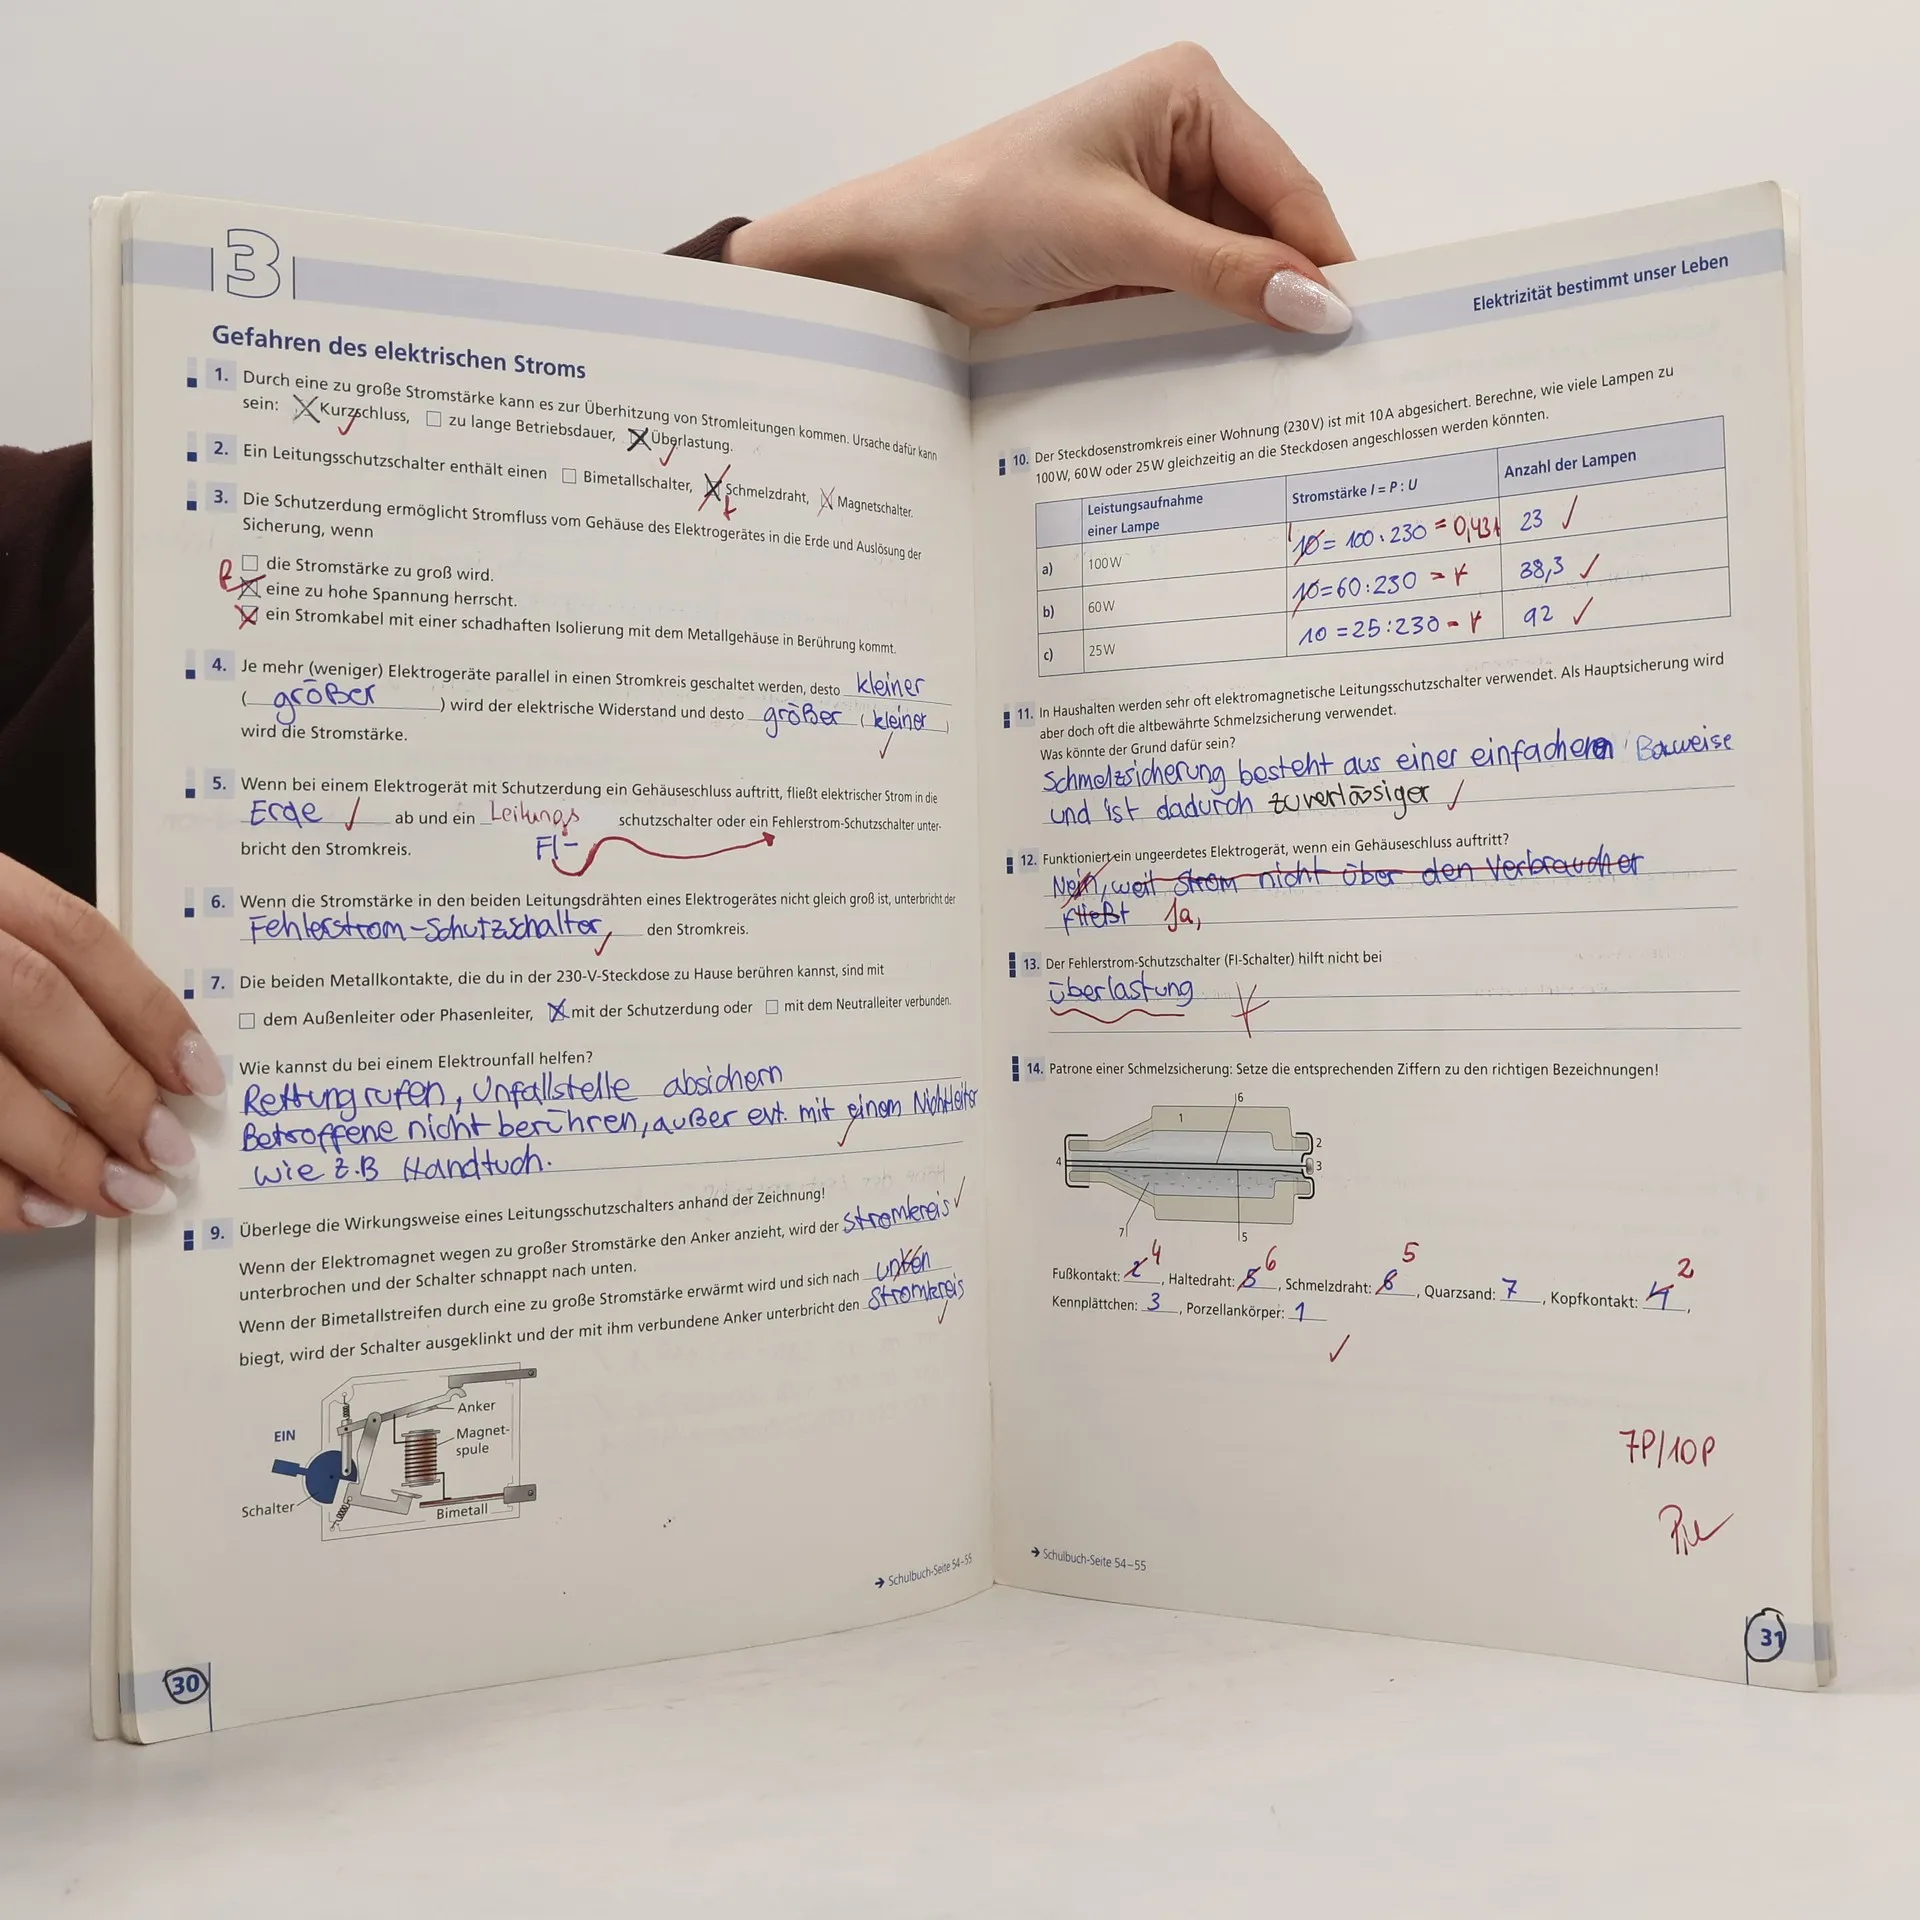 3
Gefahren des elektrischen Stroms
1. Durch eine zu große Stromstärke kann es zur Überhitzung von Stromleitungen kommen. Ursache dafür kann
sein: Kurzschluss, zu lange Betriebsdauer, Überlastung.
2. Ein Leitungsschutzschalter enthält einen Bimetallschalter, Schmelzdraht, Magnetschalter.
3. Die Schutzerdung ermöglicht Stromfluss vom Gehäuse des Elektrogerätes in die Erde und Auslösung der
Sicherung, wenn
die Stromstärke zu groß wird.
f eine zu hohe Spannung herrscht.
ein Stromkabel mit einer schadhaften Isolierung mit dem Metallgehäuse in Berührung kommt.
4. Je mehr (weniger) Elektrogeräte parallel in einen Stromkreis geschaltet werden, desto kleiner
( größer ) wird der elektrische Widerstand und desto größer ( kleiner )
wird die Stromstärke.
5. Wenn bei einem Elektrogerät mit Schutzerdung ein Gehäuseschluss auftritt, fließt elektrischer Strom in die
Erde ab und ein Leitungs schutzschalter oder ein Fehlerstrom-Schutzschalter unter-
bricht den Stromkreis. FI-
6. Wenn die Stromstärke in den beiden Leitungsdrähten eines Elektrogerätes nicht gleich groß ist, unterbricht der
Fehlerstrom-Schutzschalter, den Stromkreis.
7. Die beiden Metallkontakte, die du in der 230-V-Steckdose zu Hause berühren kannst, sind mit
dem Außenleiter oder Phasenleiter, mit der Schutzerdung oder mit dem Neutralleiter verbunden.
Wie kannst du bei einem Elektrounfall helfen?
Rettung rufen, Unfallstelle absichern
Betroffene nicht berühren, außer evt. mit einem Nichtleiter
wie z.B Handtuch.
9. Überlege die Wirkungsweise eines Leitungsschutzschalters anhand der Zeichnung!
Wenn der Elektromagnet wegen zu großer Stromstärke den Anker anzieht, wird der Stromkreis
unterbrochen und der Schalter schnappt nach unten.
Wenn der Bimetallstreifen durch eine zu große Stromstärke erwärmt wird und sich nach unten
biegt, wird der Schalter ausgeklinkt und der mit ihm verbundene Anker unterbricht den Stromkreis
Anker
EIN
Magnet-
spule
Schalter
Bimetall
→ Schulbuch-Seite 54–55
30
Elektrizität bestimmt unser Leben
10. Der Steckdosenstromkreis einer Wohnung (230 V) ist mit 10 A abgesichert. Berechne, wie viele Lampen zu
100 W, 60 W oder 25 W gleichzeitig an die Steckdosen angeschlossen werden könnten.
Leistungsaufnahme einer Lampe Stromstärke I = P : U Anzahl der Lampen
a) 100 W 10 = 100 : 230 = 0,43A 23
b) 60 W 10=60:230 38,3
c) 25 W 10 =25:230 92
11. In Haushalten werden sehr oft elektromagnetische Leitungsschutzschalter verwendet. Als Hauptsicherung wird
aber doch oft die altbewährte Schmelzsicherung verwendet.
Was könnte der Grund dafür sein?
Schmelzsicherung besteht aus einer einfacheren Bauweise
und ist dadurch zuverlässiger
12. Funktioniert ein ungeerdetes Elektrogerät, wenn ein Gehäuseschluss auftritt?
Nein, weil Strom nicht über den Verbraucher
fließt Ja,
13. Der Fehlerstrom-Schutzschalter (FI-Schalter) hilft nicht bei
überlastung
14. Patrone einer Schmelzsicherung: Setze die entsprechenden Ziffern zu den richtigen Bezeichnungen!
6
1
2
4
3
7
5
4 6 5 2
Fußkontakt: 2, Haltedraht: 5, Schmelzdraht: 6, Quarzsand: 7, Kopfkontakt: 4,
Kennplättchen: 3, Porzellankörper: 1
7P/10P
→ Schulbuch-Seite 54–55
31